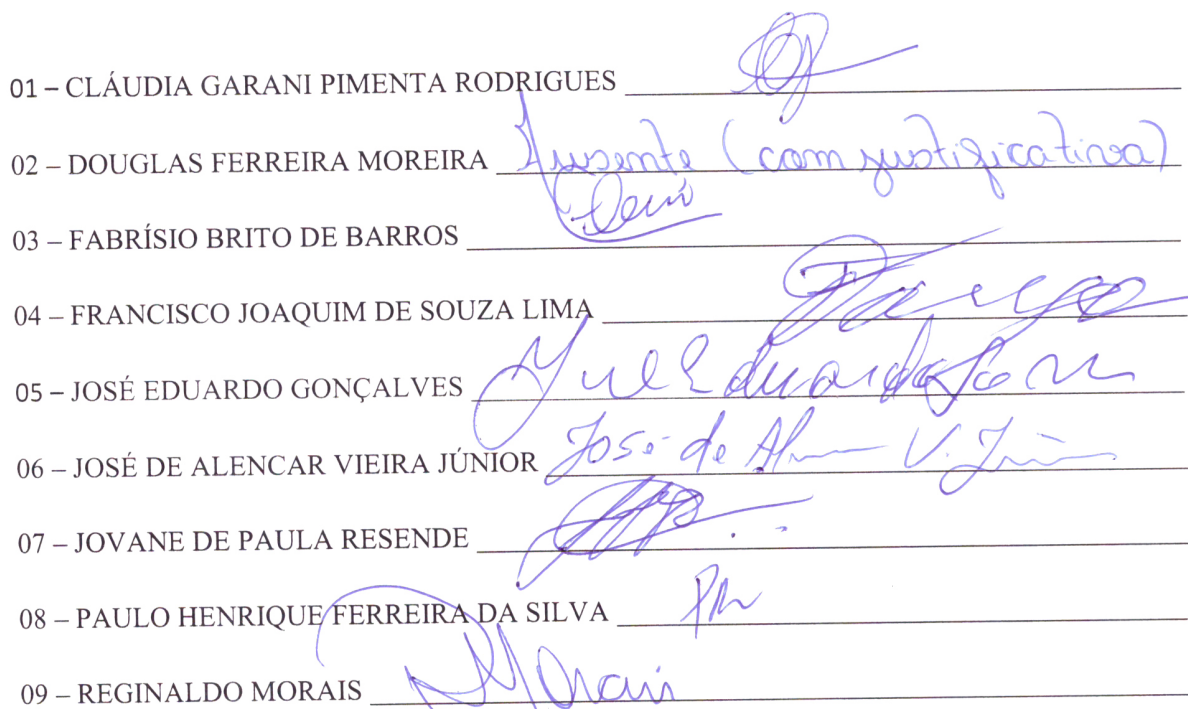 01 – CLÁUDIA GARANI PIMENTA RODRIGUES
02 – DOUGLAS FERREIRA MOREIRA Ausente (com justificativa)
03 – FABRÍSIO BRITO DE BARROS
04 – FRANCISCO JOAQUIM DE SOUZA LIMA
05 – JOSÉ EDUARDO GONÇALVES Eduardo
06 – JOSÉ DE ALENCAR VIEIRA JÚNIOR José de V.
07 – JOVANE DE PAULA RESENDE
08 – PAULO HENRIQUE FERREIRA DA SILVA
09 – REGINALDO MORAIS Morais